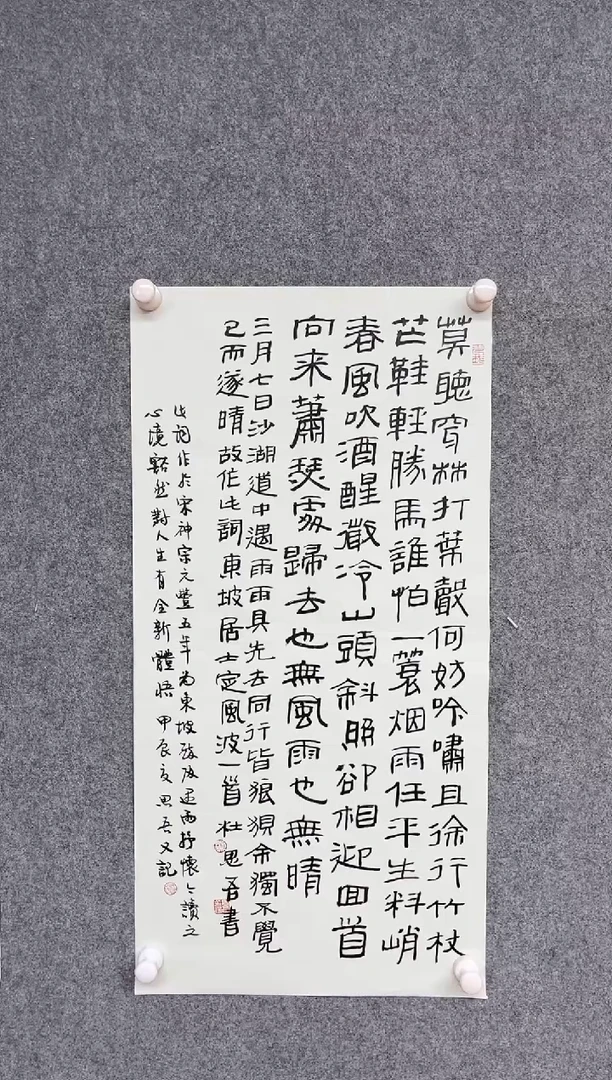 莫聽穿林打葉聲何妨吟嘯且徐行竹杖
芒鞋輕勝馬誰怕一蓑烟雨任平生料峭
春風吹酒醒微冷山頭斜照卻相迎回首
向来蕭瑟處歸去也無風雨也無晴
三月七日沙湖道中遇雨雨具先去同行皆狼狽余獨不覺
已而遂晴故作此詞東坡居士定風波一首杜思吾書
此詞作於宋神宗元豐五年为東坡雨抒懷讀之
心境豁然對人生有全新體悟甲辰夏思吾又記